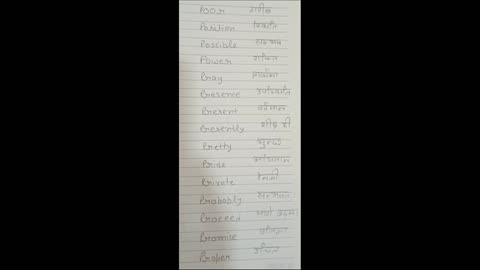 Poor गरीब
Position स्थिति
Possible सम्भव
Power शक्ति
Pray प्रार्थना
Presence उपस्थिति
Present वर्तमान
Presently शीघ्र ही
Pretty सुन्दर
Pride अभिमान
Private निजी
Probably सम्भवतः
Proceed आगे बढ़ना
Promise
Proper उचित